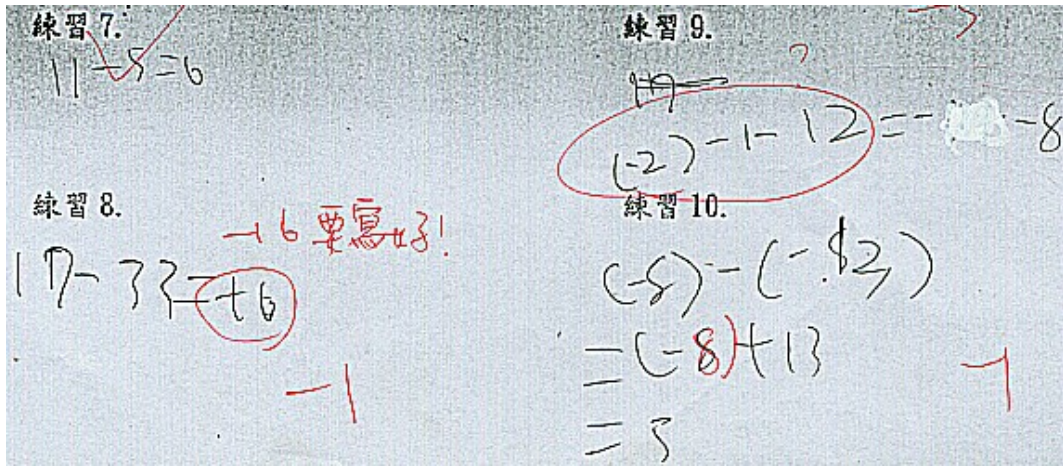 練習 7.
11-5=6
練習 8.
-16 要寫好!
17-33=+6
-1
練習 9.
?
(-2)-1-12=- -8
練習 10.
=(-8)+13
=5
-1